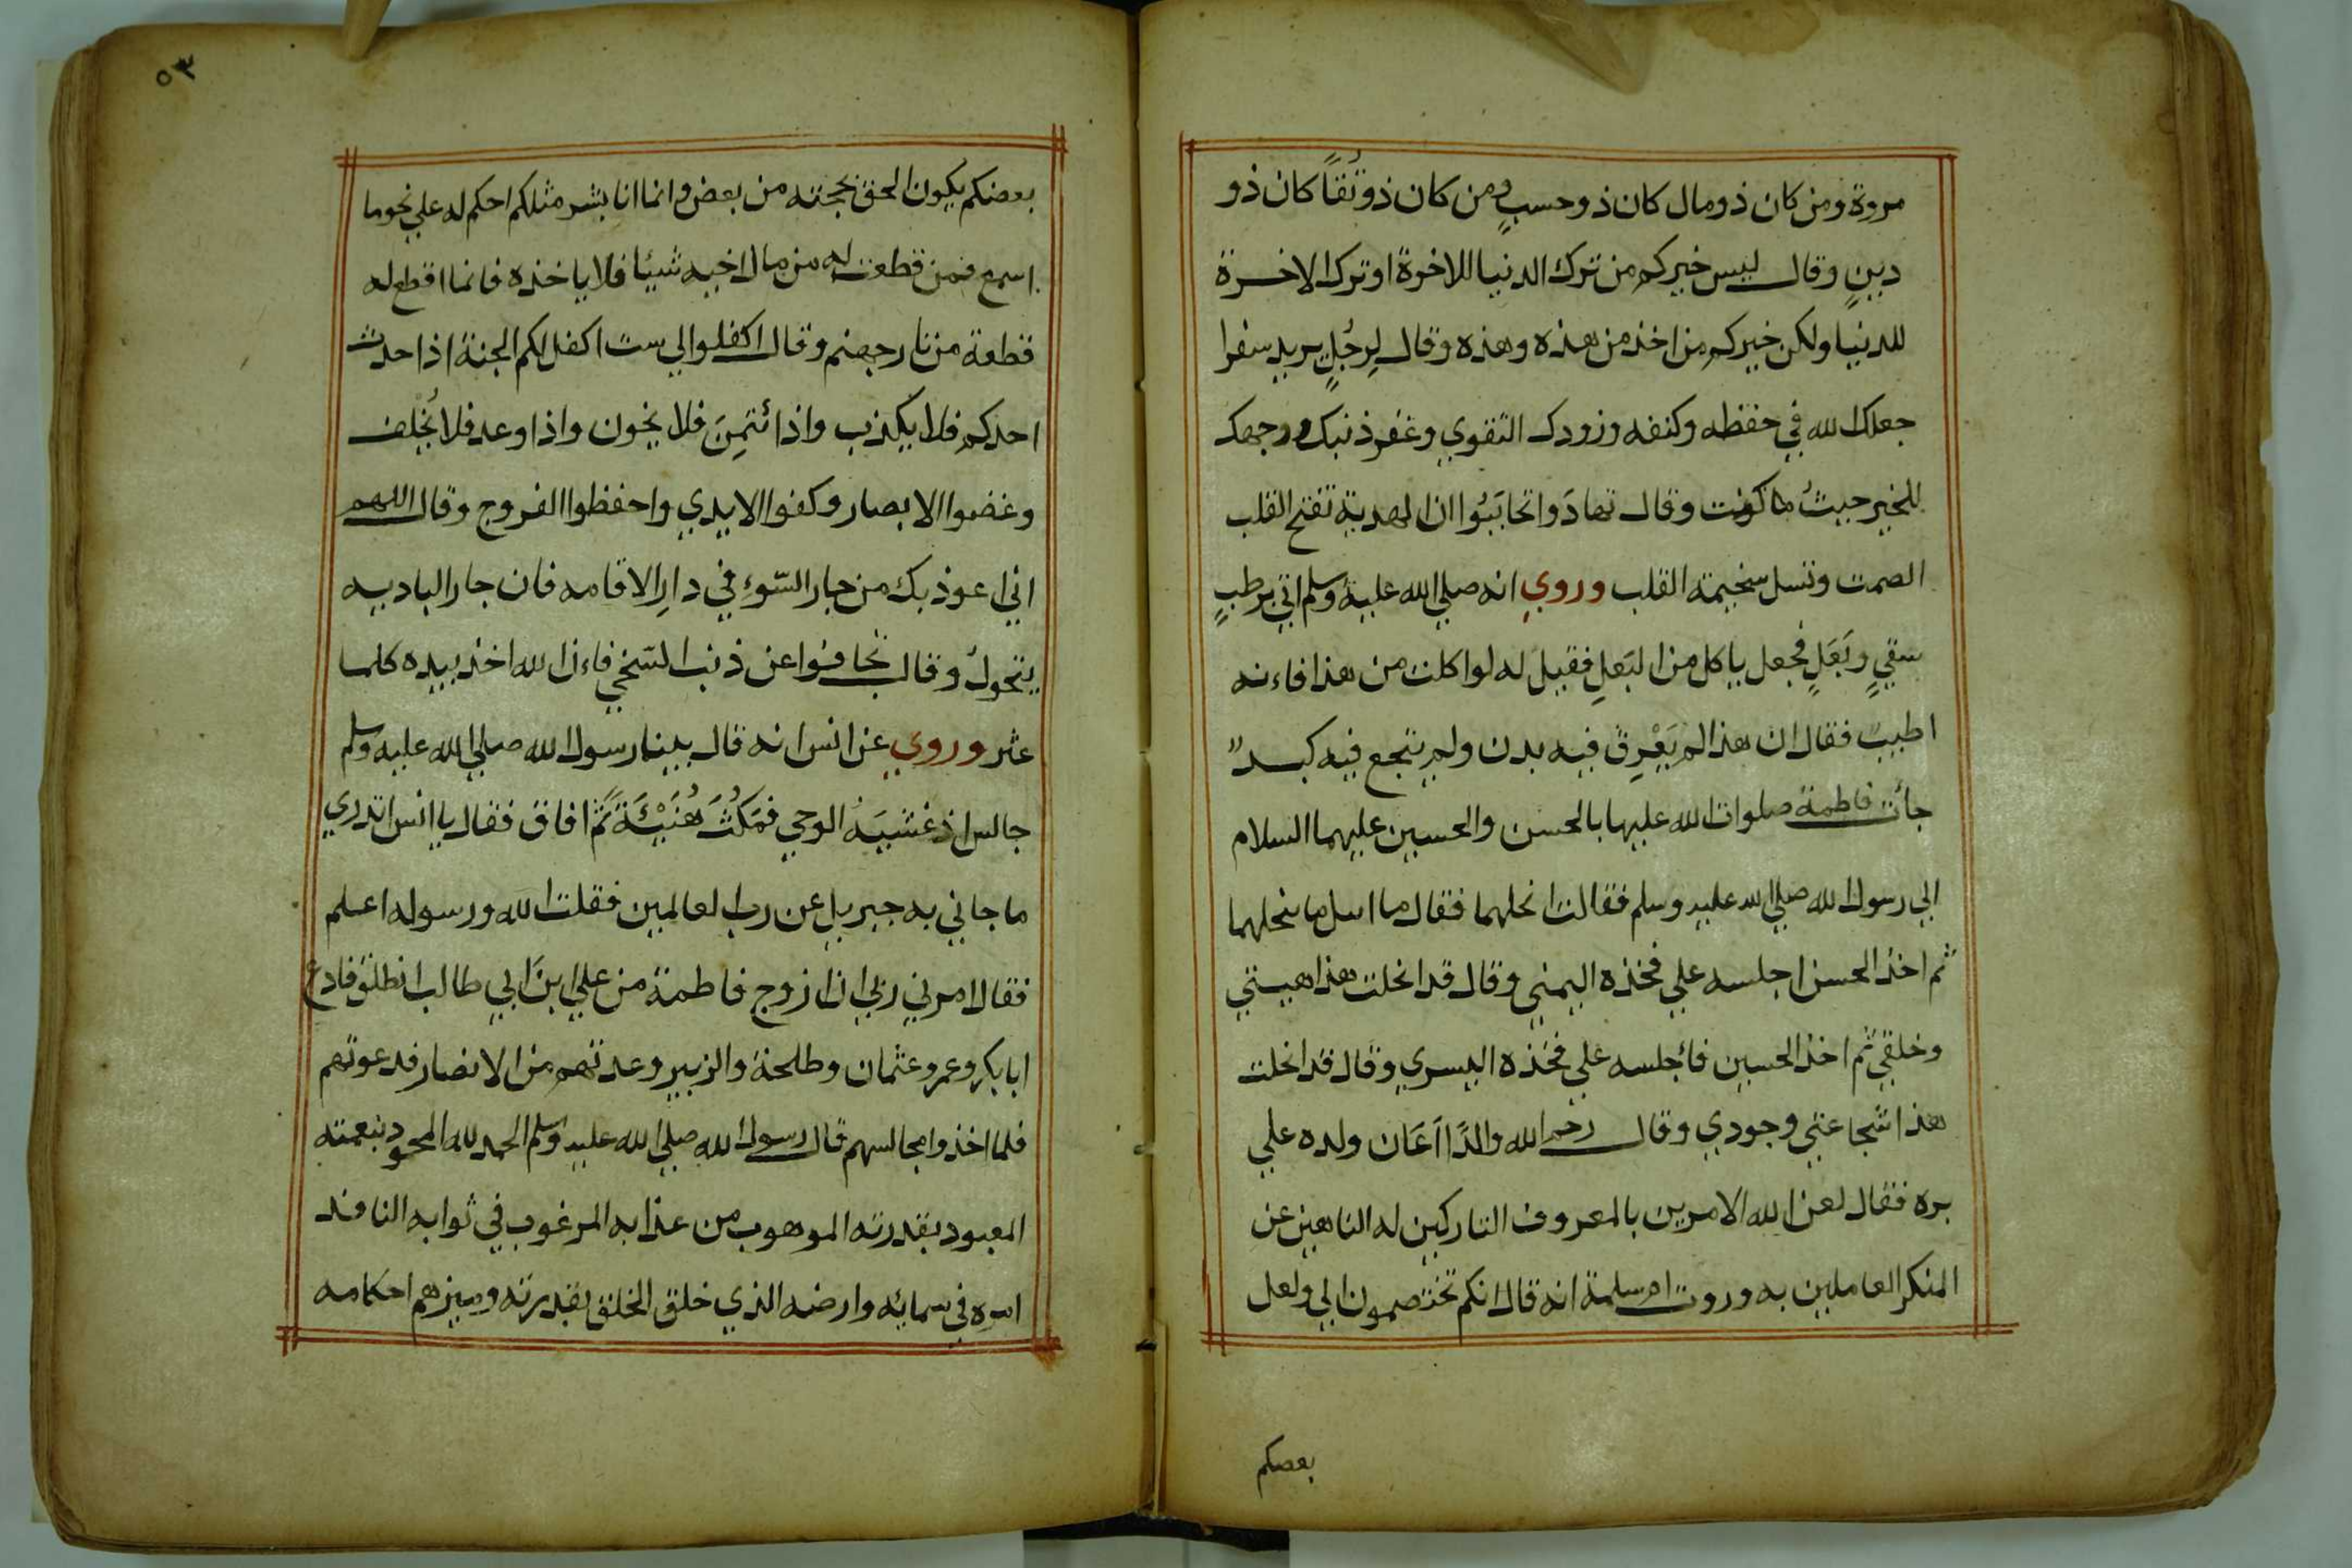 مروة ومن كان ذو مال كان ذو حسبٍ ومن كان ذو تُقاً كان ذو
دينٍ وقال ليس خيركم من ترك الدنيا للاخرة او ترك الاخرة
للدنيا ولكن خيركم من اخذ من هذه وهذه وقال لِرجُلٍ يريد سفرا
جعلك الله في حفظه وكنفه وزودك التقوي وغفر ذنبك ووجهك
للخير حيثُ ما كونت وقال تهادَوا تحابَبُوا ان الهدية تفتح القلب
الصمت وتسل سخيمة القلب وروي انه صلي الله عليه وسلم اتي برطبٍ
سقيٍ وبَعَلٍ فجعل ياكل من البَعلِ فقيل له لو اكلت من هذا فاءنه
اطيبٌ فقال ان هذا لم يَعْرِقْ فيه بدن ولم يتجع فيه كبدٌ
جأت فاطمة صلوات الله عليها بالحسن والحسين عليهما السلام
الي رسول الله صلي الله عليه وسلم فقالت انحلهما فقال ما اسل ما ينحلهما
ثم اخذ الحسن اجلسه علي فخذه اليمني وقال قد انحلت هذا هيبتي
وخلقي ثم اخذ الحسين فأجلسه علي فخذه اليسري وقال قد انحلت
هذا شجاعتي وجودي وقال رحم الله والدًا اَعَان ولده علي
بره فقال لعن الله الامرين بالمعروف التاركين له الناهين عن
المنكر العاملين به وروت ام سلمة انه قال انكم تختصمون الي ولعل
بعضكم
٥٣
بعضكم يكون الحق بحجته من بعض وانما انا بشر مثلكم احكم له علي نحو ما
اسمع فمن قطعت له من مال اخيه شيئا فلا ياخذه فانما اقطع له
قطعة من نار جهنم وقال اكفلوا لي ست اكفل لكم الجنة اذا حدث
احدكم فلا يكذب واذا ئتمِنَ فلا يخون واذا وعد فلا يُخلف
وغضوا الابصار وكفوا الايدي واحفظوا الفروج وقال اللهم
اني اعوذ بك من جار السّوءِ في دارِ الاقامه فان جار الباديه
يتحولُ وقال تجافوا عن ذنب السّخي فاءن الله اخذ بيده كلما
عثر وروي عن انس انه قال بينا رسول الله صلي الله عليه وسلم
جالس اذ غشيَهُ الوحي فمَكُثَ هُنَيْئَةً ثم افاق فقال يا انس اتدري
ما جاني به جبريل عن رب العالمين فقلت الله ورسوله اعلم
فقال امرني ربي ان ازوج فاطمة من علي ابن ابي طالب انطلق فادع
ابا بكر وعمر وعثمان وطلحة والزبير وعدتهم من الانصار فدعوتهم
فلما اخذوا مجالسهم قال رسول الله صلي الله عليه وسلم الحمد لله المحمود بنعمته
المعبود بقدرته الموهوب من عذابه المرغوب في ثوابه النافذ
امره في سمائه وارضه الذي خلق الخلق بقدرته وميزهم احكامه